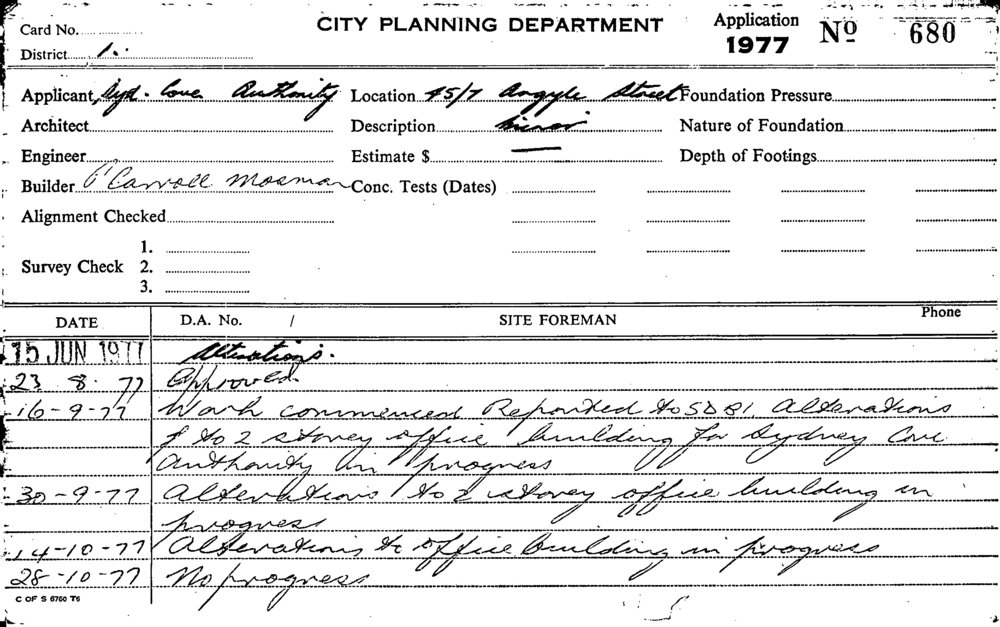 CITY PLANNING DEPARTMENT
Card No.
District 1.
Application 1977 No 680
Applicant Syd. Cove Authority Location 45/7 Argyle Street Foundation Pressure
Architect Description minor Nature of Foundation
Engineer Estimate $ — Depth of Footings
Builder O'Carroll Mosman Conc. Tests (Dates)
Alignment Checked
1.
Survey Check 2.
3.
DATE D.A. No. / SITE FOREMAN Phone
15 JUN 1977 Alterations.
23 8. 77 Approved.
16-9-77 Work commenced Reported to Alterations
to 2 storey office building for Sydney Cove
Authority in progress
30-9-77 Alterations to 2 storey office building in
progress
14-10-77 Alterations to office building in progress
28-10-77 No progress
C OF S 6760 T6